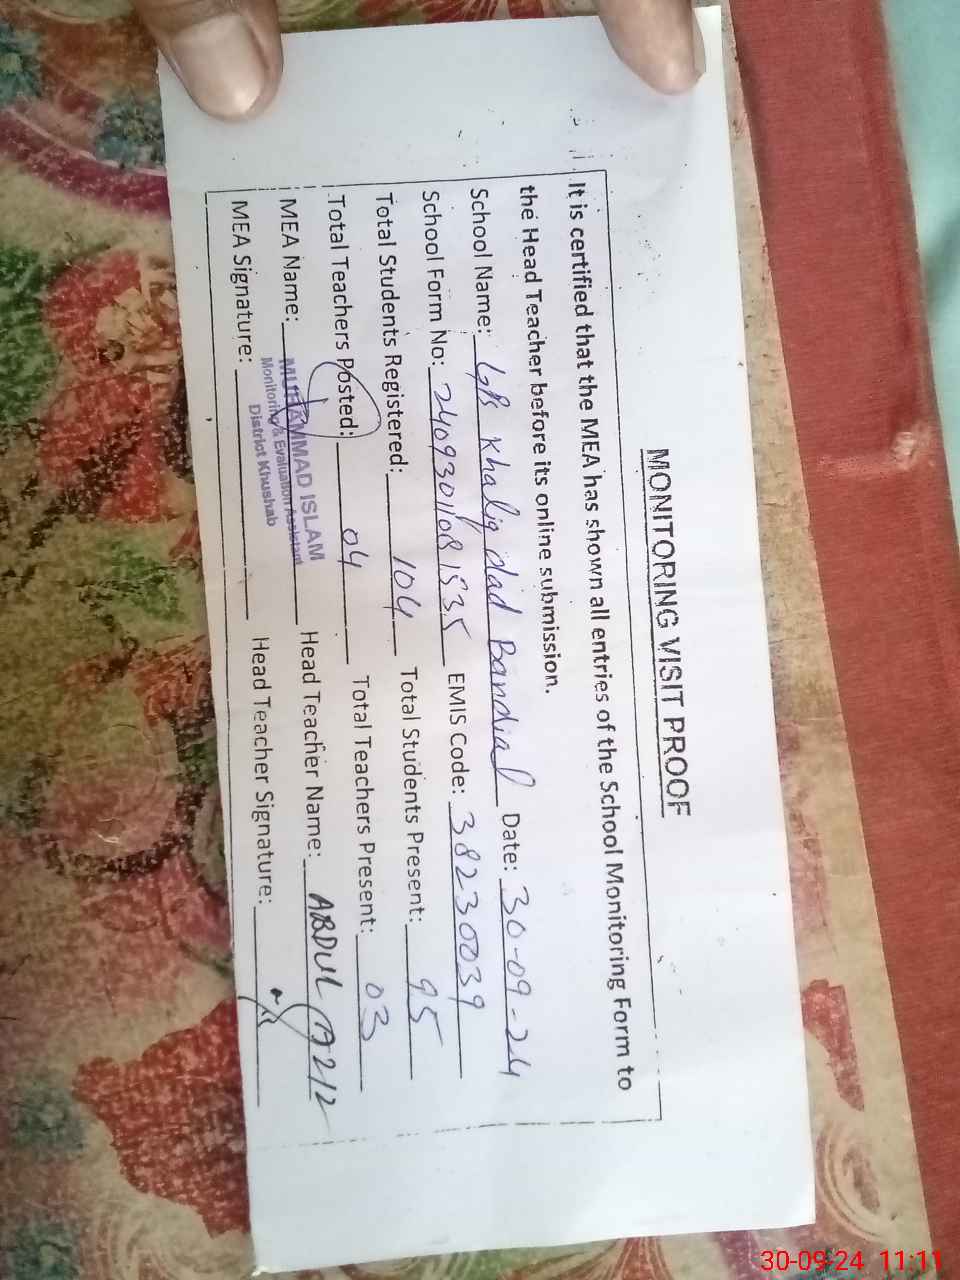 MONITORING VISIT PROOF
It is certified that the MEA has shown all entries of the School Monitoring Form to
the Head Teacher before its online submission.
School Name: GPS Khaliq dad Bandial Date: 30-09-24
School Form No: 24093011081535 EMIS Code: 38230039
Total Students Registered: 104 Total Students Present: 95
Total Teachers Posted: 04 Total Teachers Present: 03
MEA Name: MUHAMMAD ISLAM Head Teacher Name: ABDUL AZIZ
Monitoring & Evaluation Assistant
District Khushab
MEA Signature: Head Teacher Signature:
30-09-24 11:11